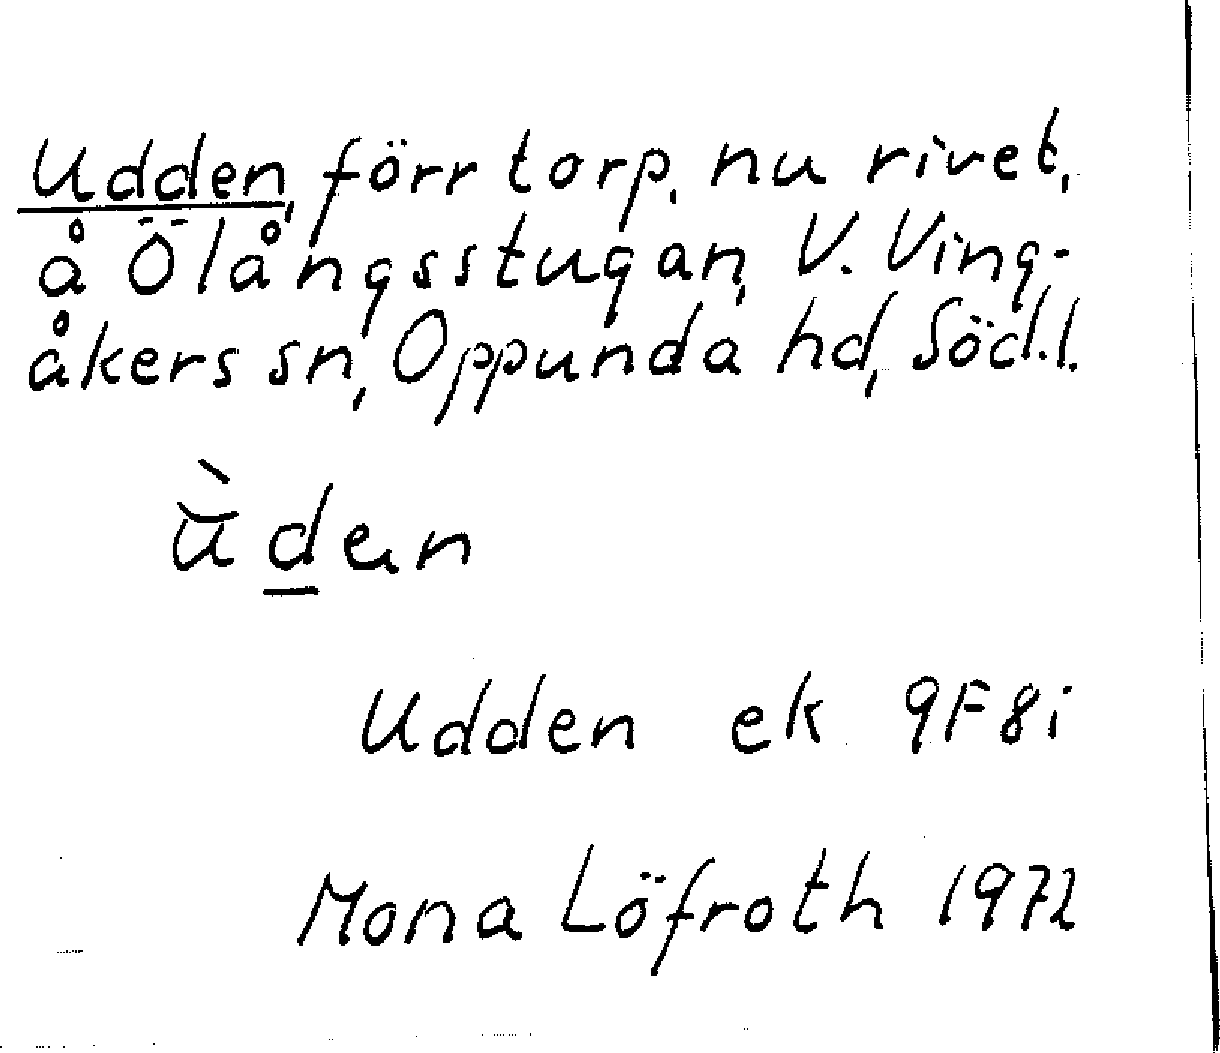 Udden, förr torp, nu rivet,
å Ölångsstugan, V. Ving-
åkers sn, Oppunda hd, Söd.l.
ù̆d̲en
Udden ek 9F8i
Mona Löfroth 1972